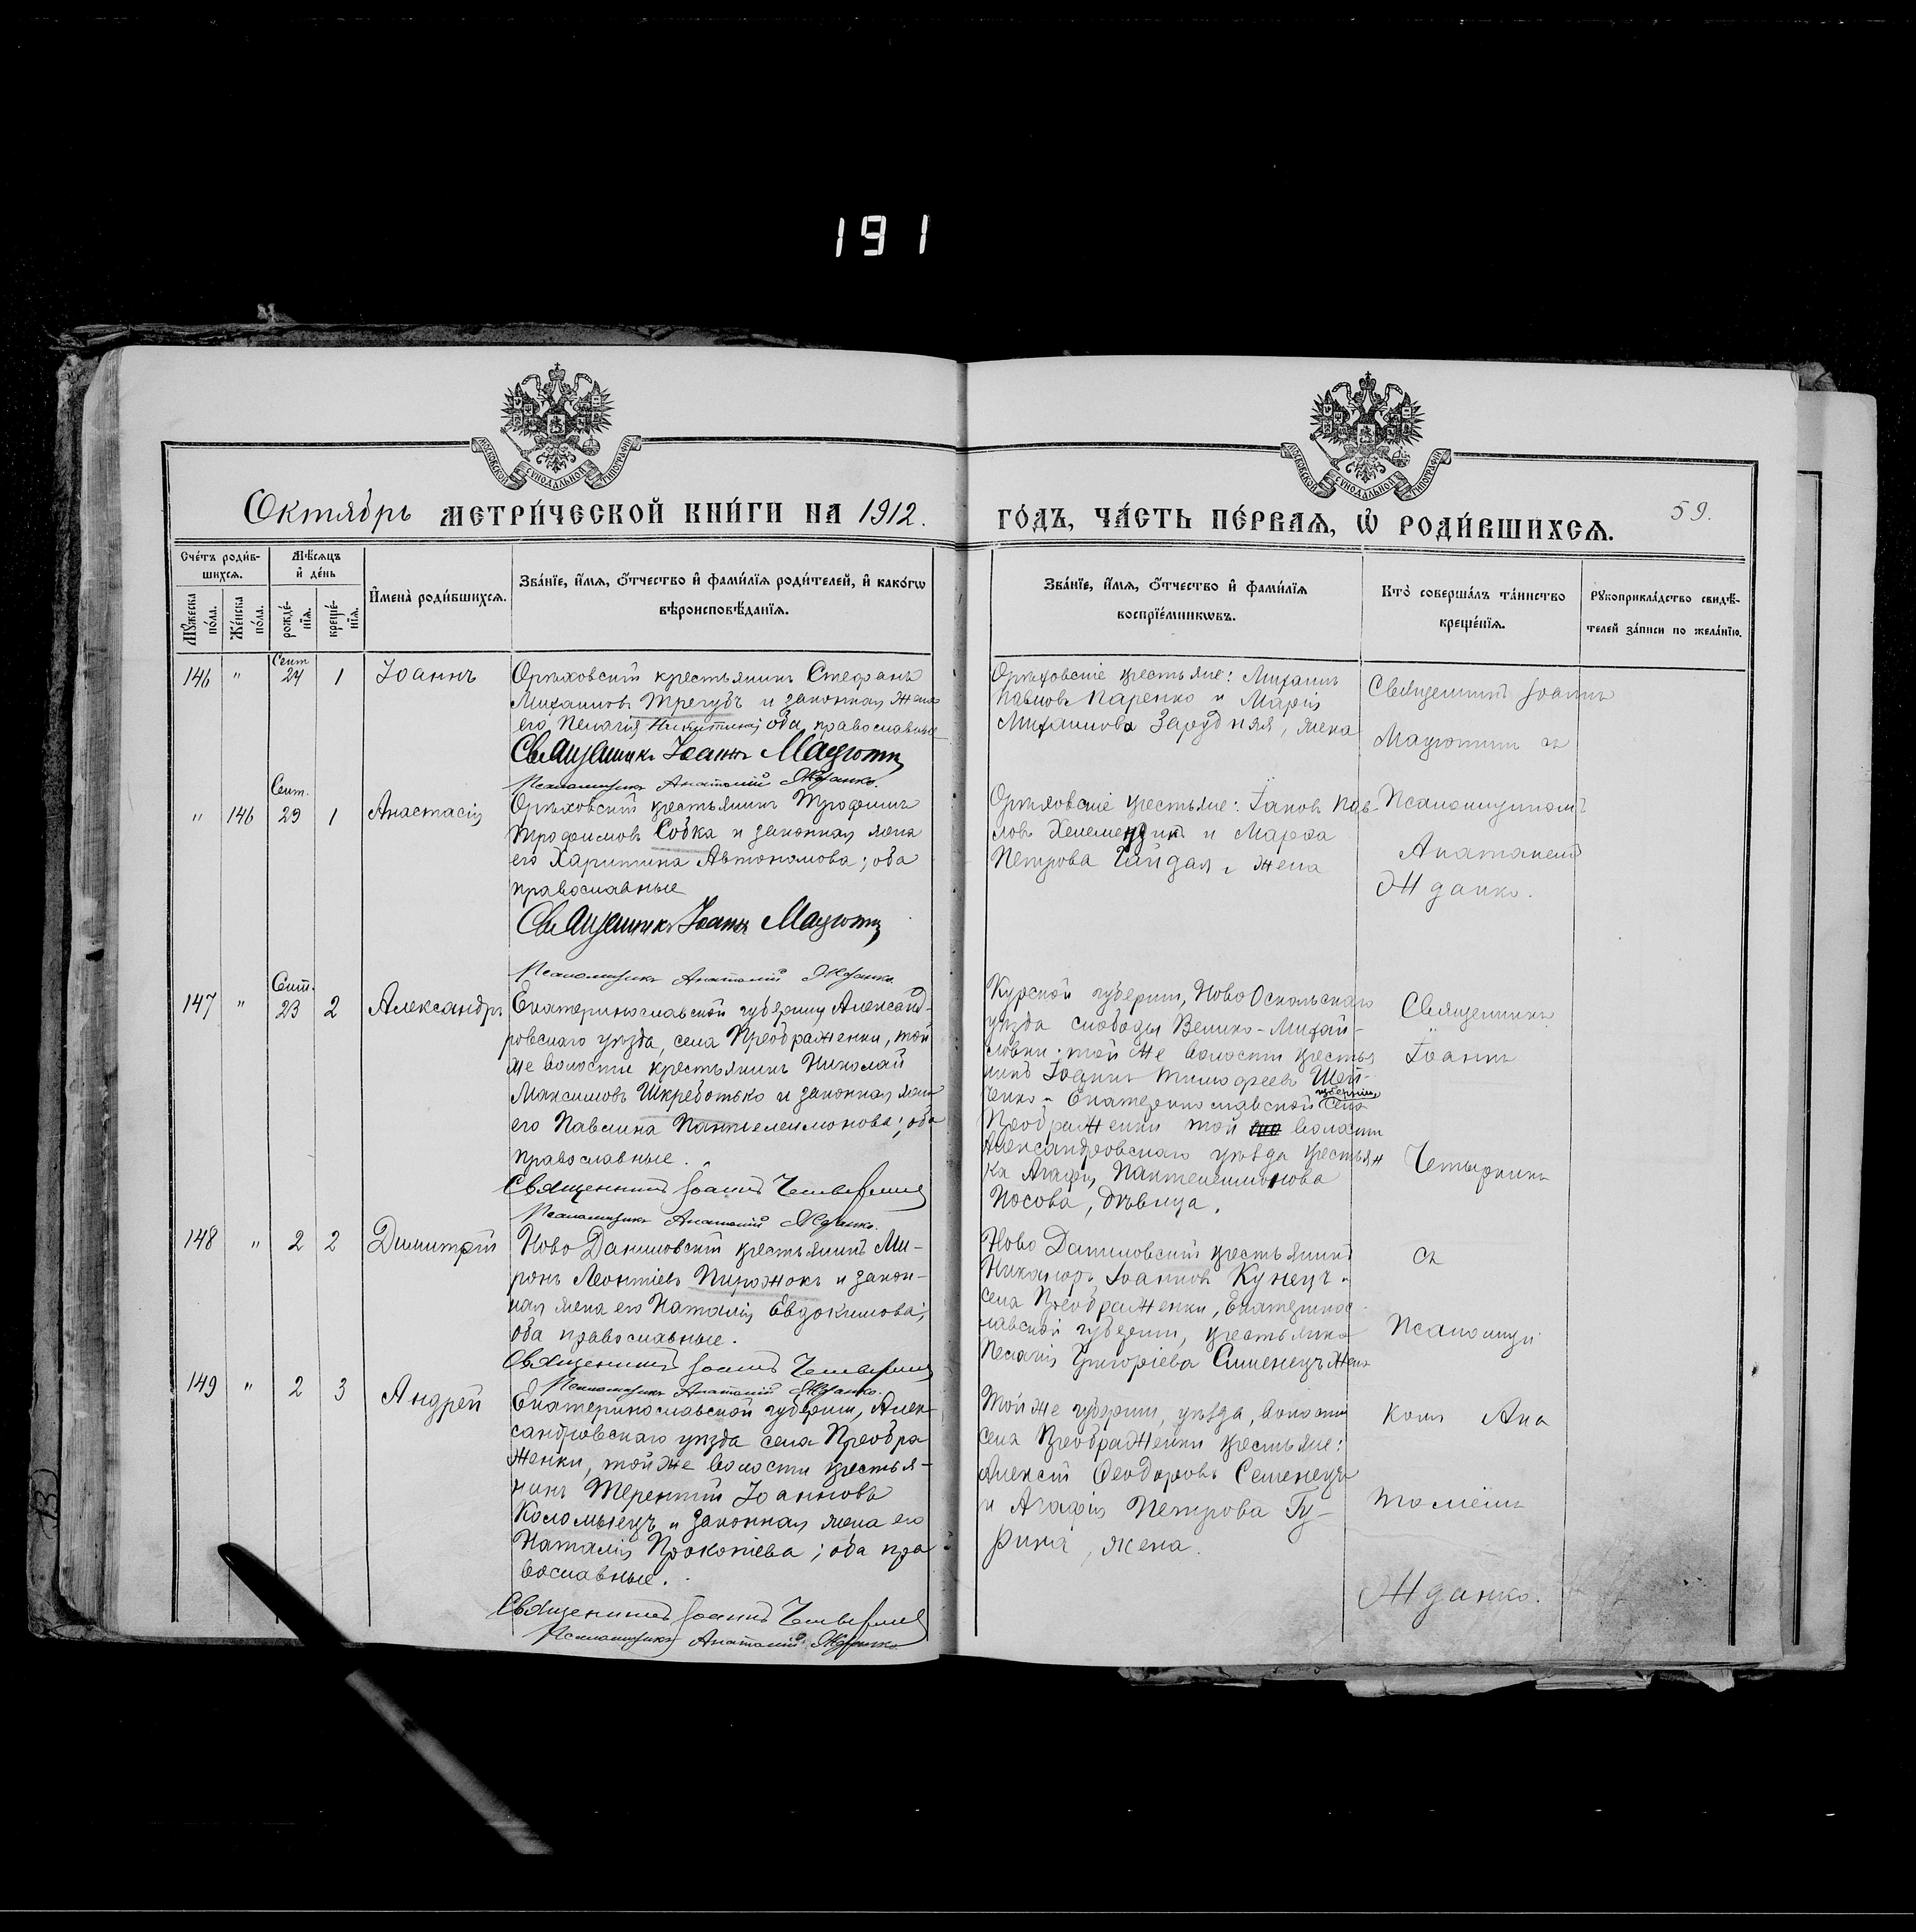 191
МОСКОВСКОЙ СУНОДАЛЬНОЙ ТИПОГРАФІИ
МОСКОВСКОЙ СУНОДАЛЬНОЙ ТИПОГРАФІИ
Октябрь МЕТРИ́ЧЕСКОЙ КНИ́ГИ НА 1912.
ГО́ДЪ, ЧА́СТЬ ПЕ́РВАѦ, Ѡ҆ РОДИ́ВШИХСѦ.
59.
Сче́тъ роди́в-
шихсѧ.
Мѣ́сѧцъ
и҆ де́нь
Мꙋ́жеска
по́ла.
Же́нска
по́ла.
рожде́-
нїѧ.
креще́-
нїѧ.
И҆мена̀ роди́вшихсѧ.
Зва́нїе, и҆́мѧ, ѻ҆́тчество и҆ фами́лїѧ роди́телей, и҆ како́гѡ
вѣроисповѣ́данїѧ.
Зва́нїе, и҆́мѧ, ѻ҆́тчество и҆ фами́лїѧ
воспрїе́мникѡвъ.
Кто̀ соверша́лъ та́инство
креще́нїѧ.
Рꙋкоприкла́дство свидѣ́-
телей за́писи по жела́нїю.
146 " Сент 24 1 Іоаннъ
Орѣховскій крестьянинъ Стефанъ
Михаиловъ Трегубъ и законная жена
его Пелагія Никитина; оба православные
Священникъ Іоаннъ
Псаломщикъ Анатолій Жданко.
Орѣховскіе крестьяне: Михаилъ
Павловъ Паренко и Марія
Михаилова Зарудняя, жена
Священникъ Іоаннъ
съ
" 146 Сент. 29 1 Анастасія
Орѣховскій крестьянинъ Трофимъ
Трофимовъ Собка и законная жена
его Харитина Автономова; оба
православные
Священникъ Іоаннъ
Псаломщикъ Анатолій Жданко
Орѣховскіе крестьяне: Іаковъ Пав-
ловъ и Марѳа
Петрова Гайдая, жена
Псаломщикомъ
Анатоліемъ
Жданко.
147 " Сент. 23 2 Александръ
Екатеринославской губерніи Александ-
ровскаго уѣзда, села Преображенки, той
же волости крестьянинъ Николай
Максимовъ Шкреботько и законная жена
его Павлина Пантелеимонова; оба
православные.
Священникъ Іоаннъ
Псаломщикъ Анатолій Жданко.
Курской губерніи, Ново Оскольскаго
уѣзда слободы Велико-Михай-
ловки той же волости крестья
нинъ Іоаннъ Тимофеевъ Шей-
ченко и Екатеринославской губерніи села
Преображенки той волости
Александровскаго уѣзда крестьян
ка Агафія Пантелеимонова
Носова, дѣвица.
Священникъ
Іоаннъ
148 " 2 2 Димитрій
Ново Даниловскій крестьянинъ Ми-
ронъ Леонтіевъ Пирожокъ и закон-
ная жена его Наталія Евдокимова;
оба православные.
Священникъ Іоаннъ
Псаломщикъ Анатолій Жданко.
Ново Даниловскій крестьянинъ
Никаноръ Іоанновъ Кунецъ и
села Преображенки, Екатеринос-
лавской губерніи, крестьянка
Пелагія Григоріева жена
съ
Псаломщи
149 " 2 3 Андрей
Екатеринославской губерніи, Алек-
сандровскаго уѣзда села Преобра
женки, той же волости крестья-
нинъ Терентій Іоанновъ
Коломыецъ и законная жена его
Наталія Прокопіева; оба пра
вославные.
Священникъ Іоаннъ
Псаломщикъ Анатолій Жданко
Той же губерніи, уѣзда, волости
села Преображенки крестьяне:
Алексій Ѳеодоровъ Семенецъ
и Агафія Петрова Гу-
рина, жена.
комъ Ана
толіемъ
Жданко.